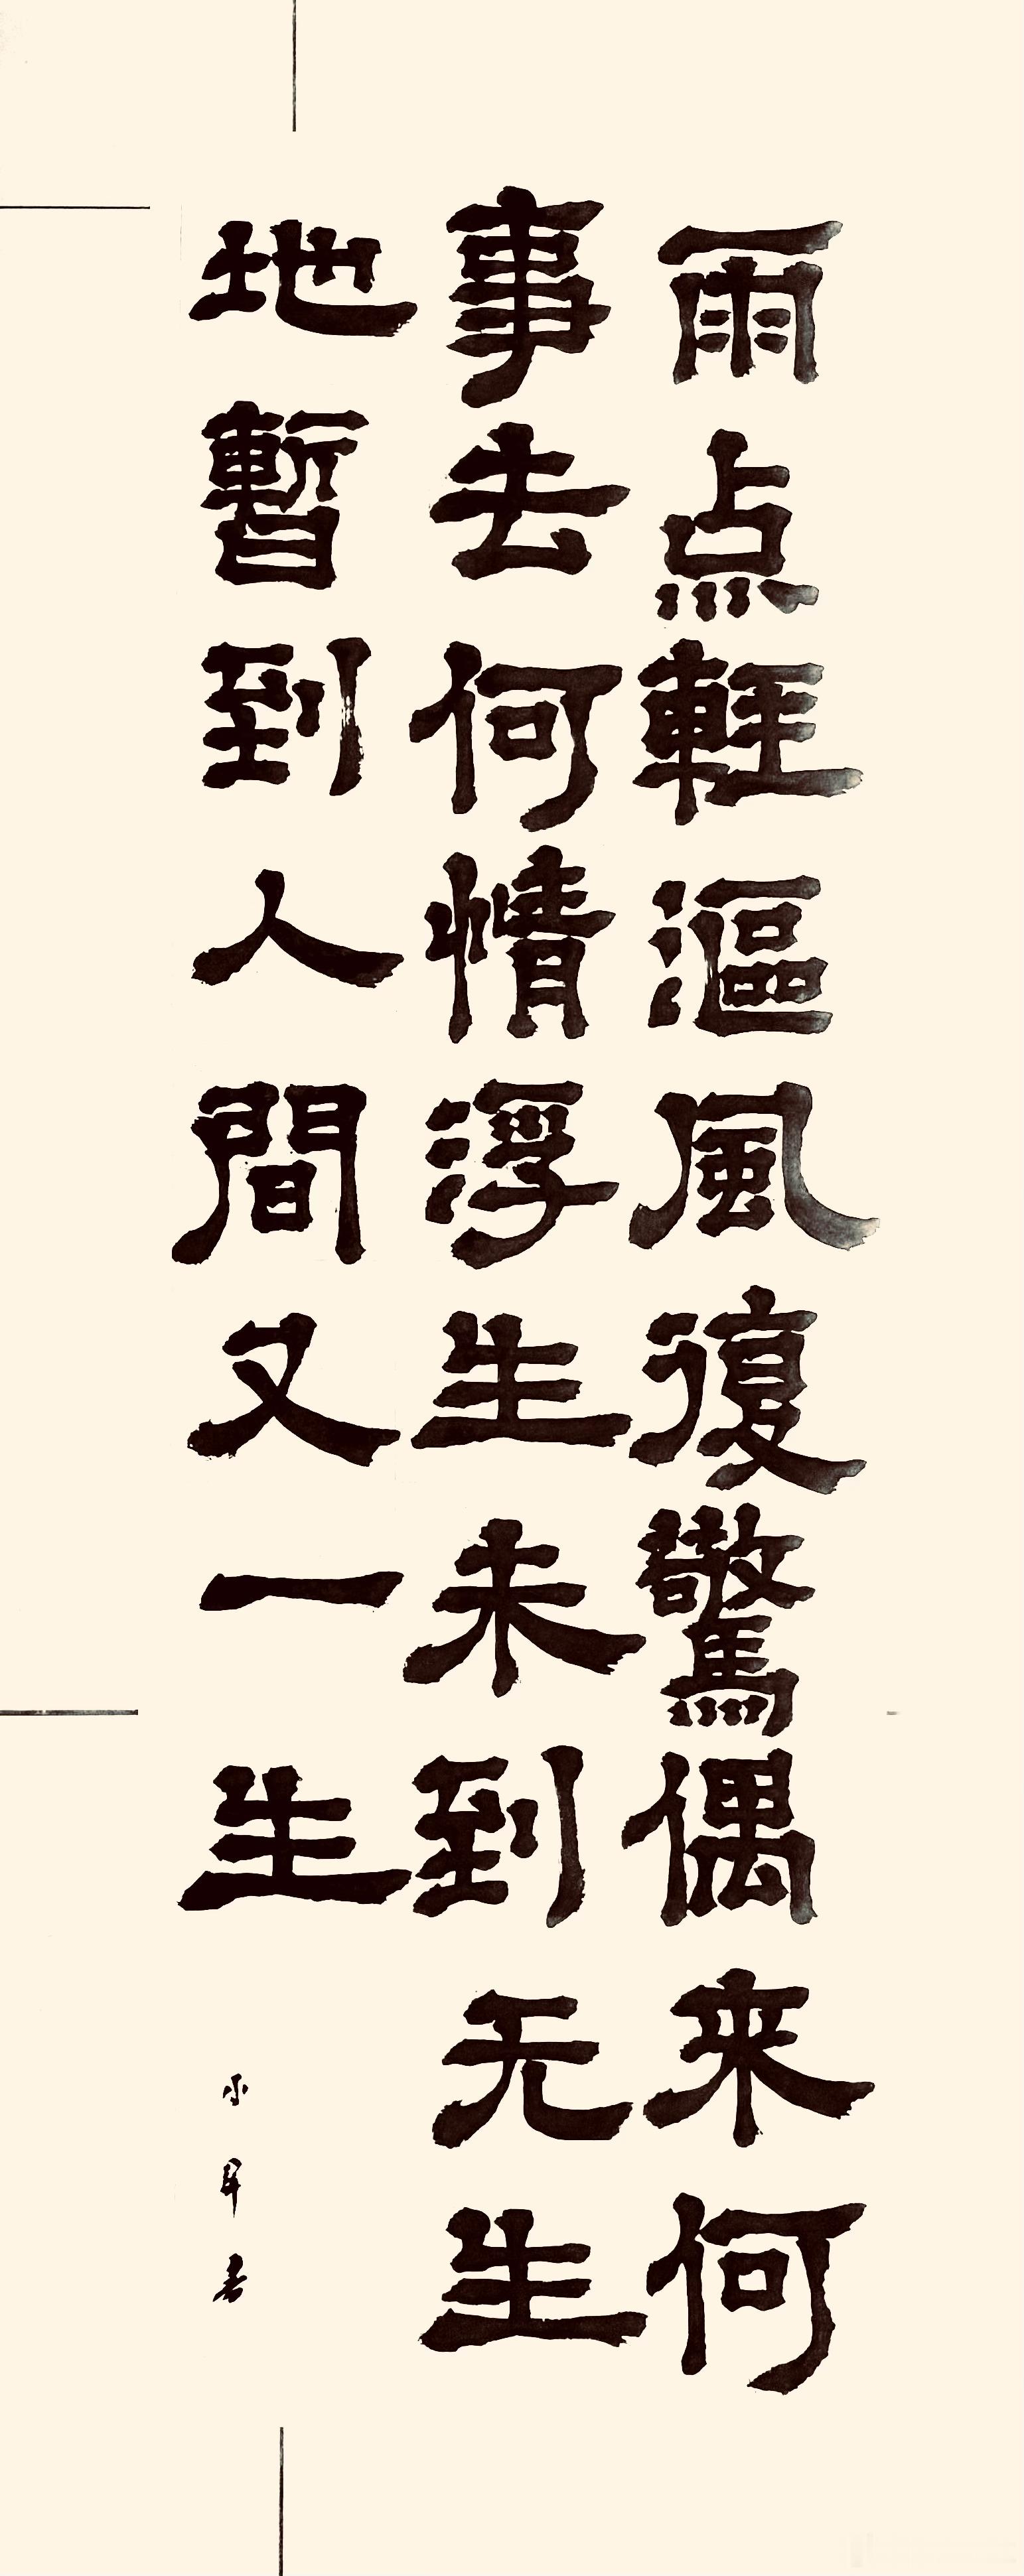 雨点輕漚風復驚偶来何
事去何情浮生未到无生
地暫到人間又一生